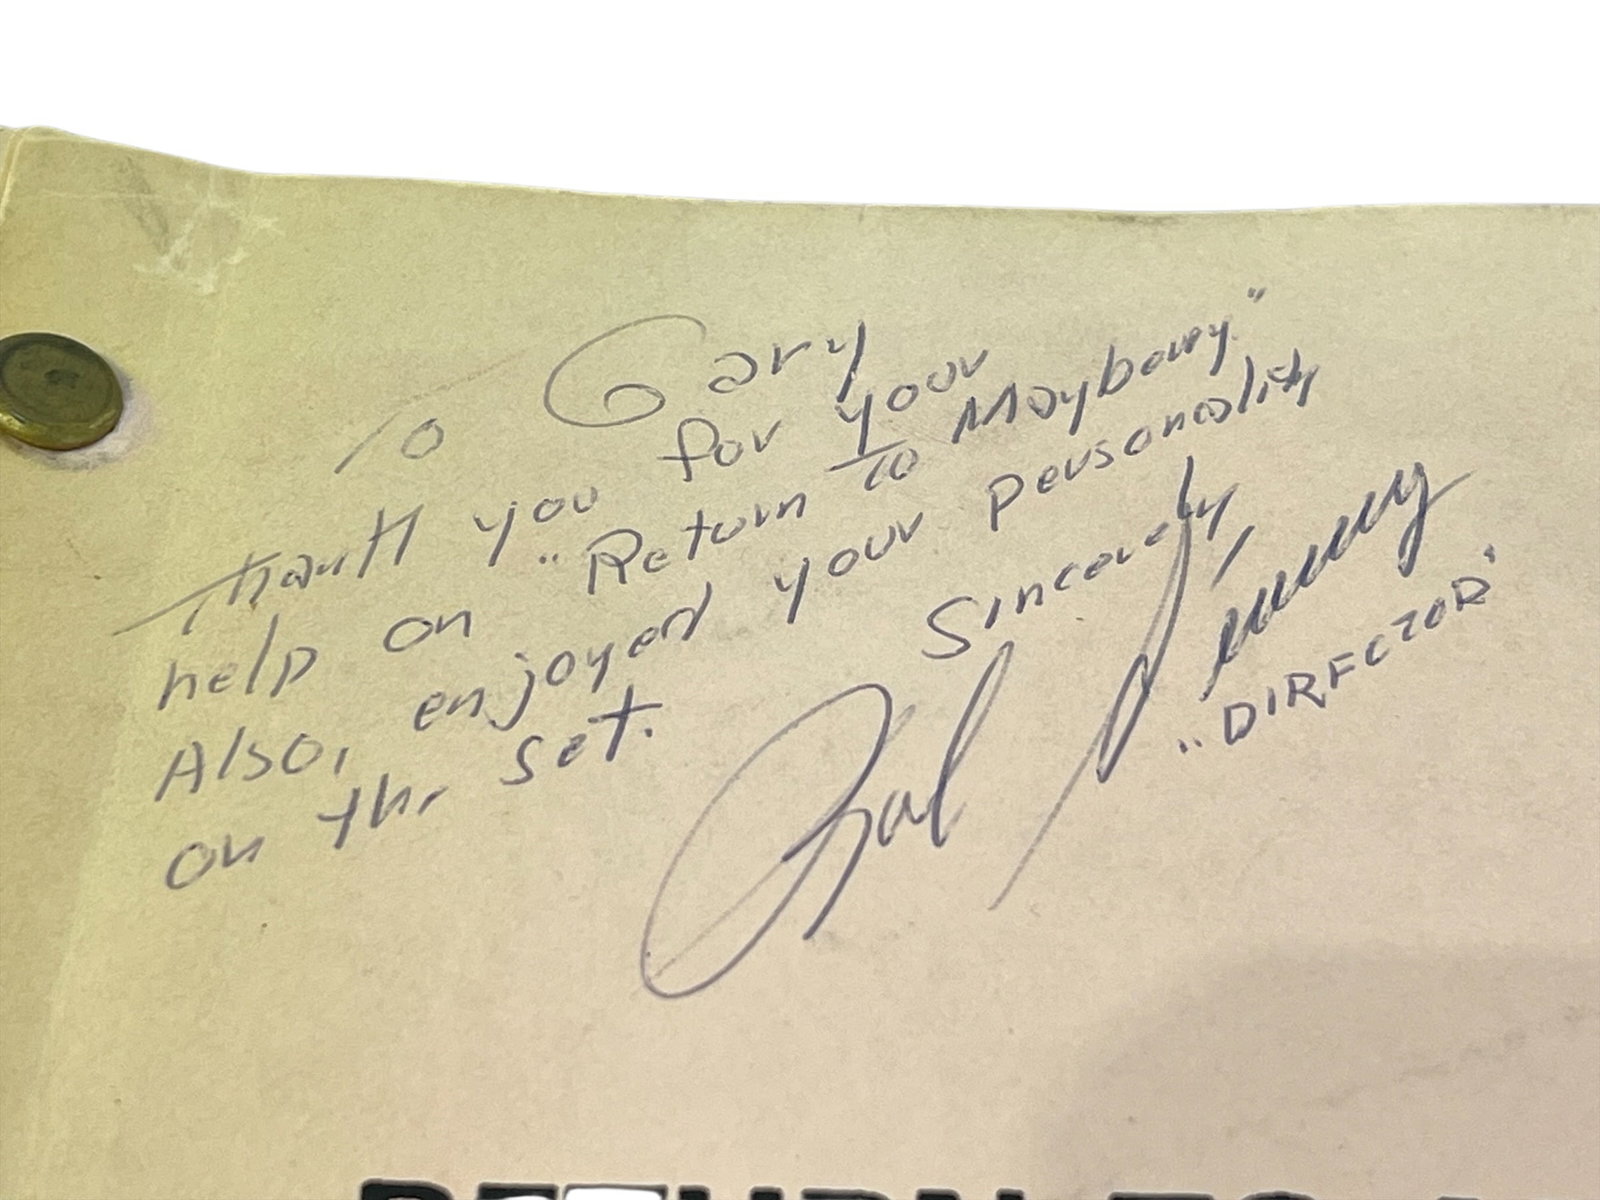 To Gary
Thank you for your
help on "Return to Mayberry."
Also, enjoyed your personality
on the set.
Sincerely
Bob Sweeney
"DIRECTOR"
RETURN TO